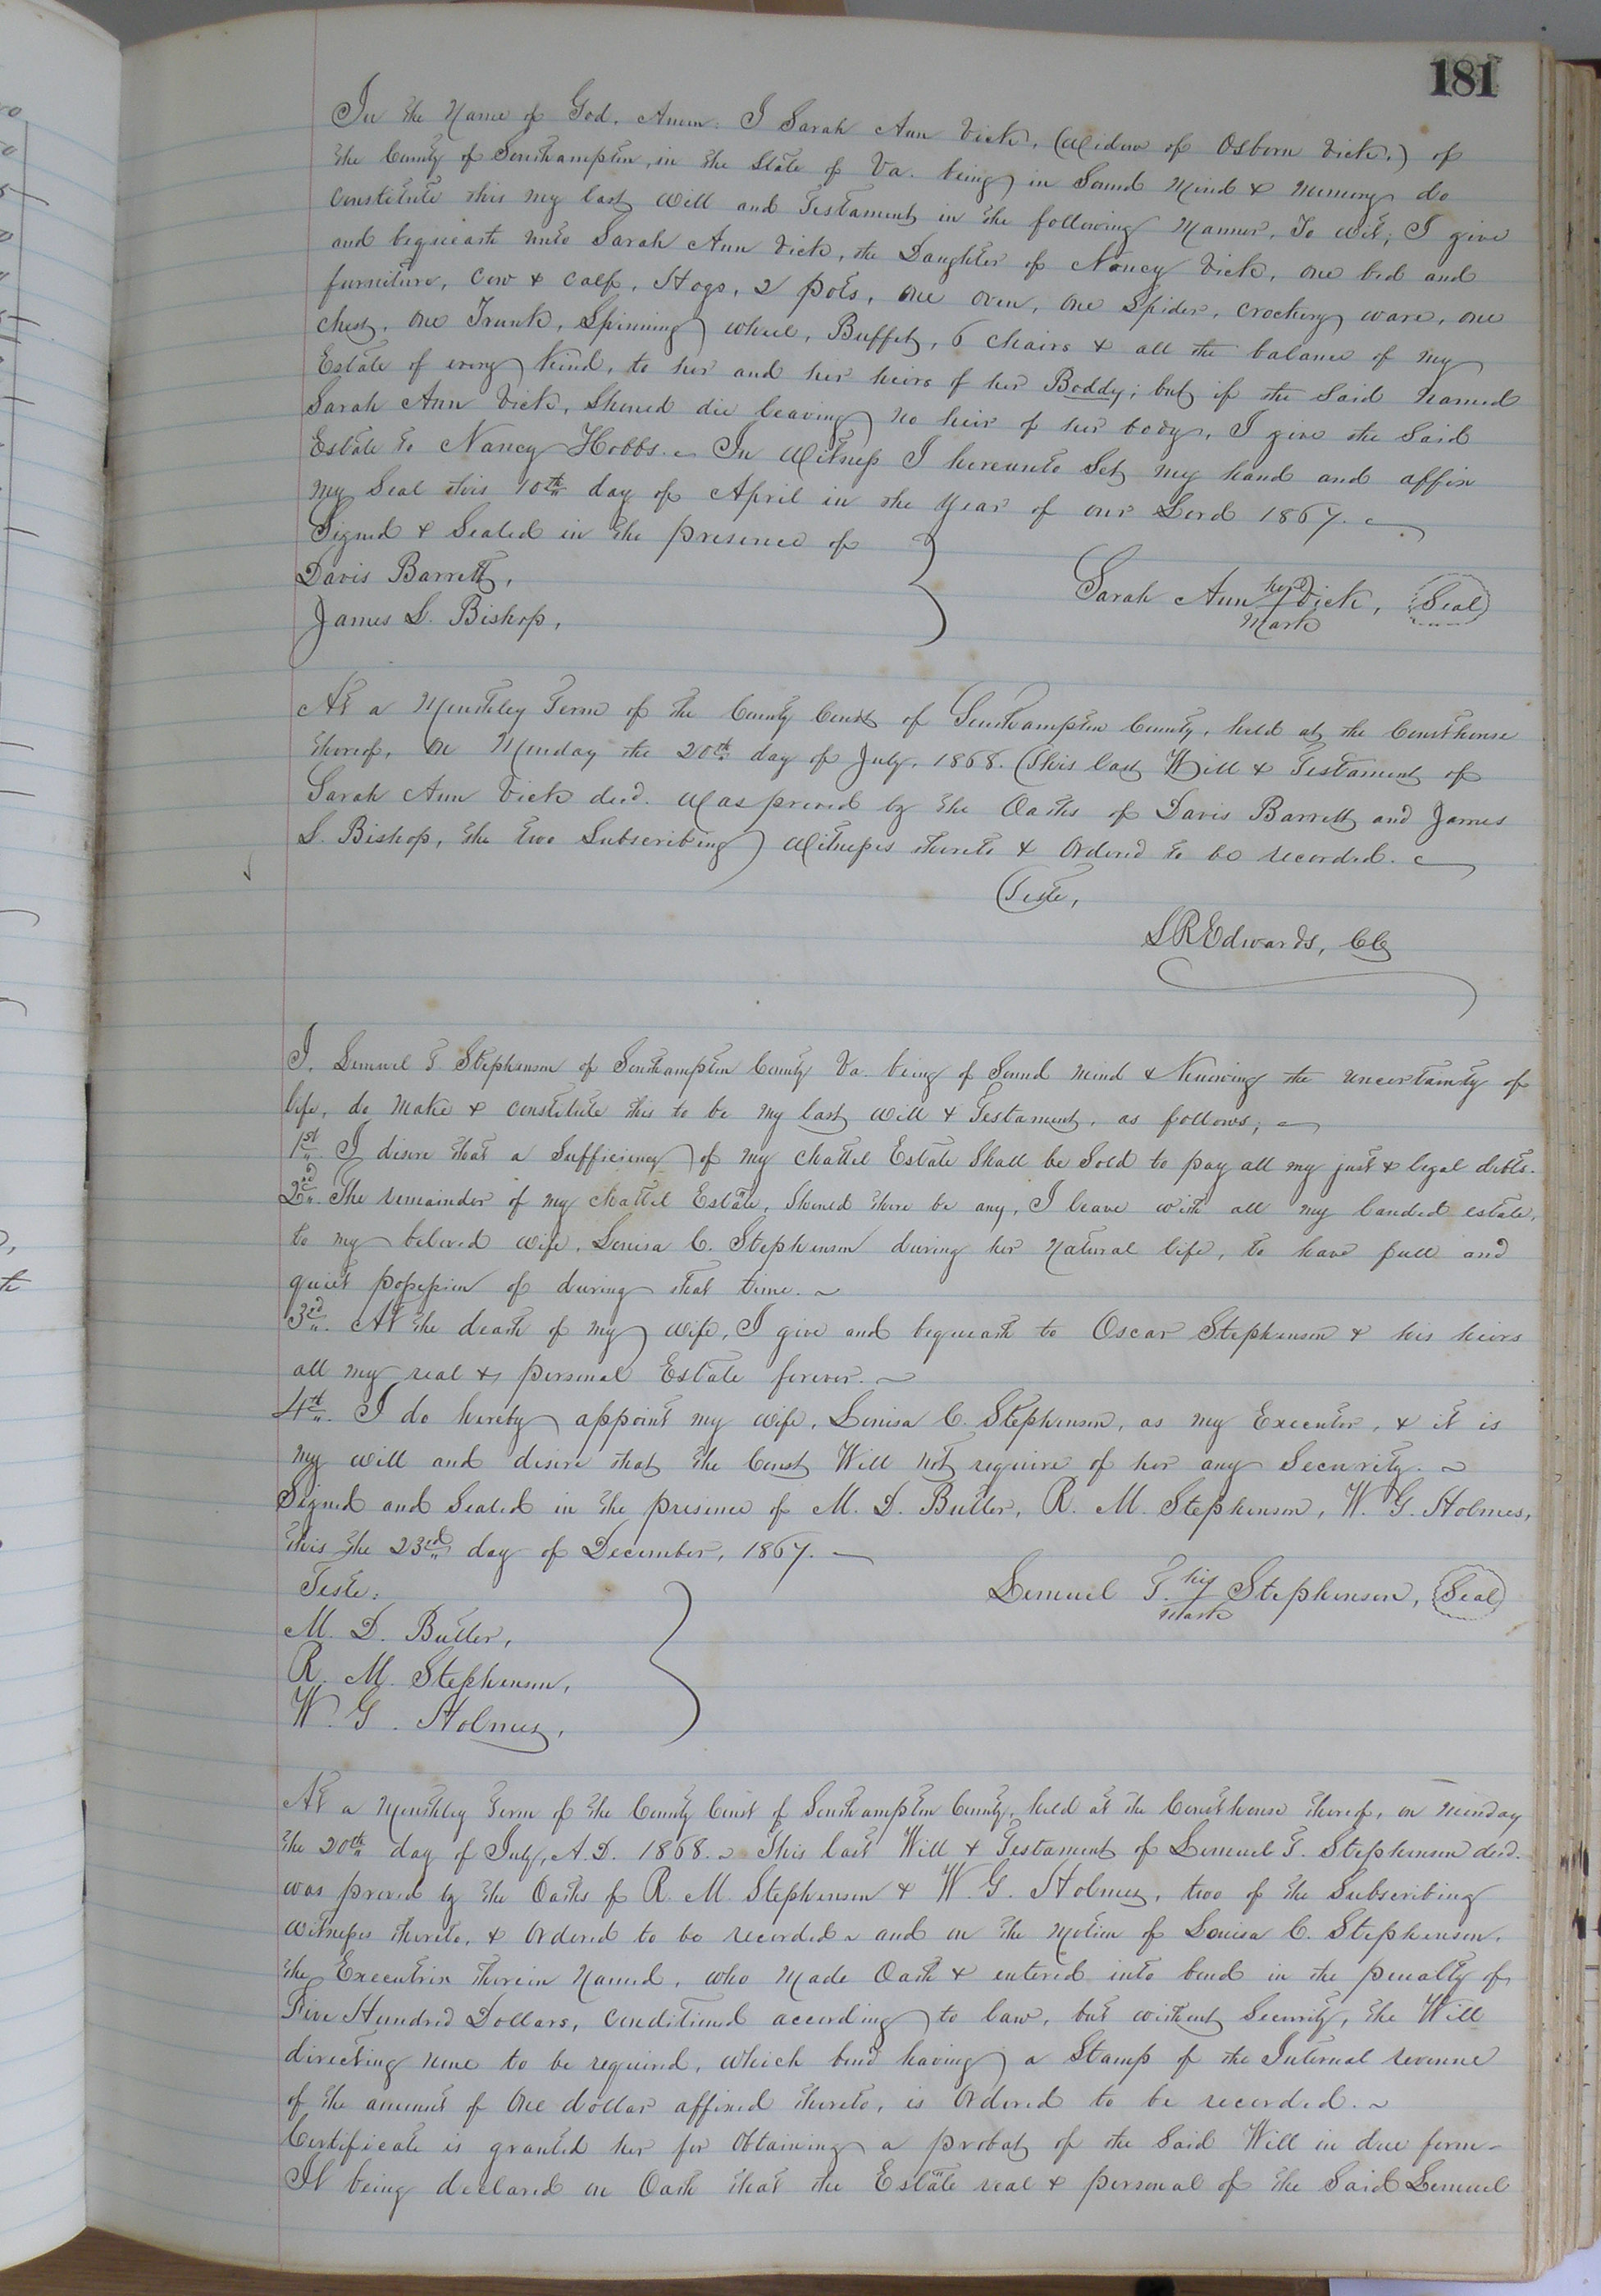 181
In the Name of God, Amen: I Sarah Ann Vick, (Widow of Osborn Vick,) of
the County of Southampton, in the State of Va. being in Sound Mind & memory do
constitute this my last will and Testament in the following Manner, To wit; I give
and bequeath unto Sarah Ann Vick, the Daughter of Nancy Vick, one bed and
furniture, cow & calf, Hogs, 2 pots, one oven, one Spider, crockery ware, one
chest, one Trunk, Spinning wheel, Buffet, 6 chairs & all the balance of my
Estate of every kind, to her and her heirs of her Boddy; but if the said named
Sarah Ann Vick, should die leaving no heir of her body, I give the said
Estate to Nancy Hobbs. In Witness I hereunto Set my hand and affix
my Seal this 10th day of April in the Year of our Lord 1867.
Signed & Sealed in the presence of
Davis Barrett,
Sarah Ann her Vick, Seal
Mark
James S. Bishop,
At a Monthley Term of the County Court of Southampton County, held at the Courthouse
thereof, on Monday the 20th day of July, 1868. This last Will & Testament of
Sarah Ann Vick decd. was proved by the Oaths of Davis Barrett and James
S. Bishop, the two Subscribing Witnesses thereto & Ordered to be recorded.
Teste,
L R Edwards, CC
I, Lemuel T. Stephenson of Southampton County Va. being of Sound mind & Knowing the uncertainty of
life, do make & constitute this to be my last will & Testament, as follows;
1st. I desire that a Sufficiency of my chattel Estate Shall be Sold to pay all my just & legal debts.
2nd. The remainder of my chattel Estate, Should there be any, I leave with all my landed estate,
to my beloved wife, Louisa C. Stephenson during her Natural life, to have full and
quiet possession of during that time.
3rd. At the death of my wife, I give and bequeath to Oscar Stephenson & his heirs
all my real & personal Estate forever.
4th. I do hereby appoint my wife, Louisa C. Stephenson, as my Executor, & it is
my will and desire that the Court Will not require of her any Security.
Signed and Sealed in the presence of M. D. Butler, R. M. Stephenson, W. G. Holmes,
this the 23rd day of December, 1867.
Teste:
Lemuel T. his Stephenson, Seal
mark
M. D. Butler,
R. M. Stephenson,
W. G. Holmes,
At a Monthley Term of the County Court of Southampton County, held at the Courthouse thereof, on Monday
the 20th day of July, A. D. 1868. This last Will & Testament of Lemuel T. Stephenson decd.
was proved by the Oaths of R. M. Stephenson & W. G. Holmes, two of the Subscribing
witnesses thereto, & Ordered to be recorded and on the Motion of Louisa C. Stephenson,
the Executrix therein Named, who made Oath & entered into bond in the penalty of
Five Hundred Dollars, conditioned according to law, but without Security, the Will
directing none to be required, which bond having a Stamp of the Internal revenue
of the amount of One dollar affixed thereto, is Ordered to be recorded.
Certificate is granted her for Obtaining a probat of the Said Will in due form
It being declared on Oath that the Estate real & personal of the Said Lemuel